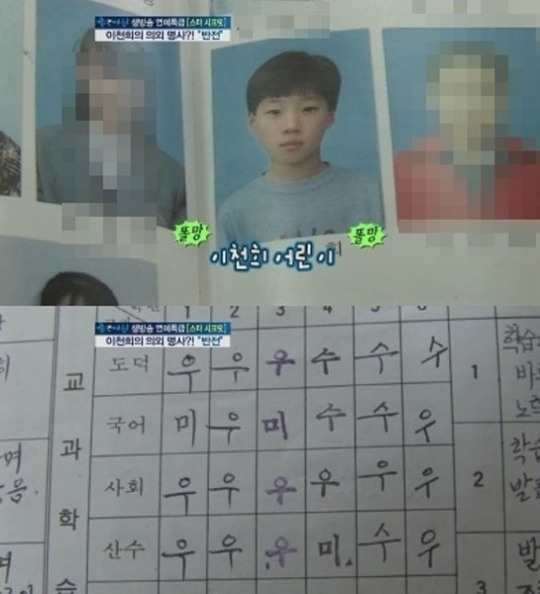 생방송 연예특급 [스타 시크릿]
이천희의 의외 명사?! "반전"
똘망 똘망
이천희 어린이
1 2 3 4 5 6
생방송 연예특급 [스타 시크릿]
이천희의 의외 명사?! "반전"
교과학습
도덕 우 우 우 수 수 수 1 학습
국어 미 우 미 수 수 우
사회 우 우 우 우 우 우 2 학습
산수 우 우 우 미 수 우
3